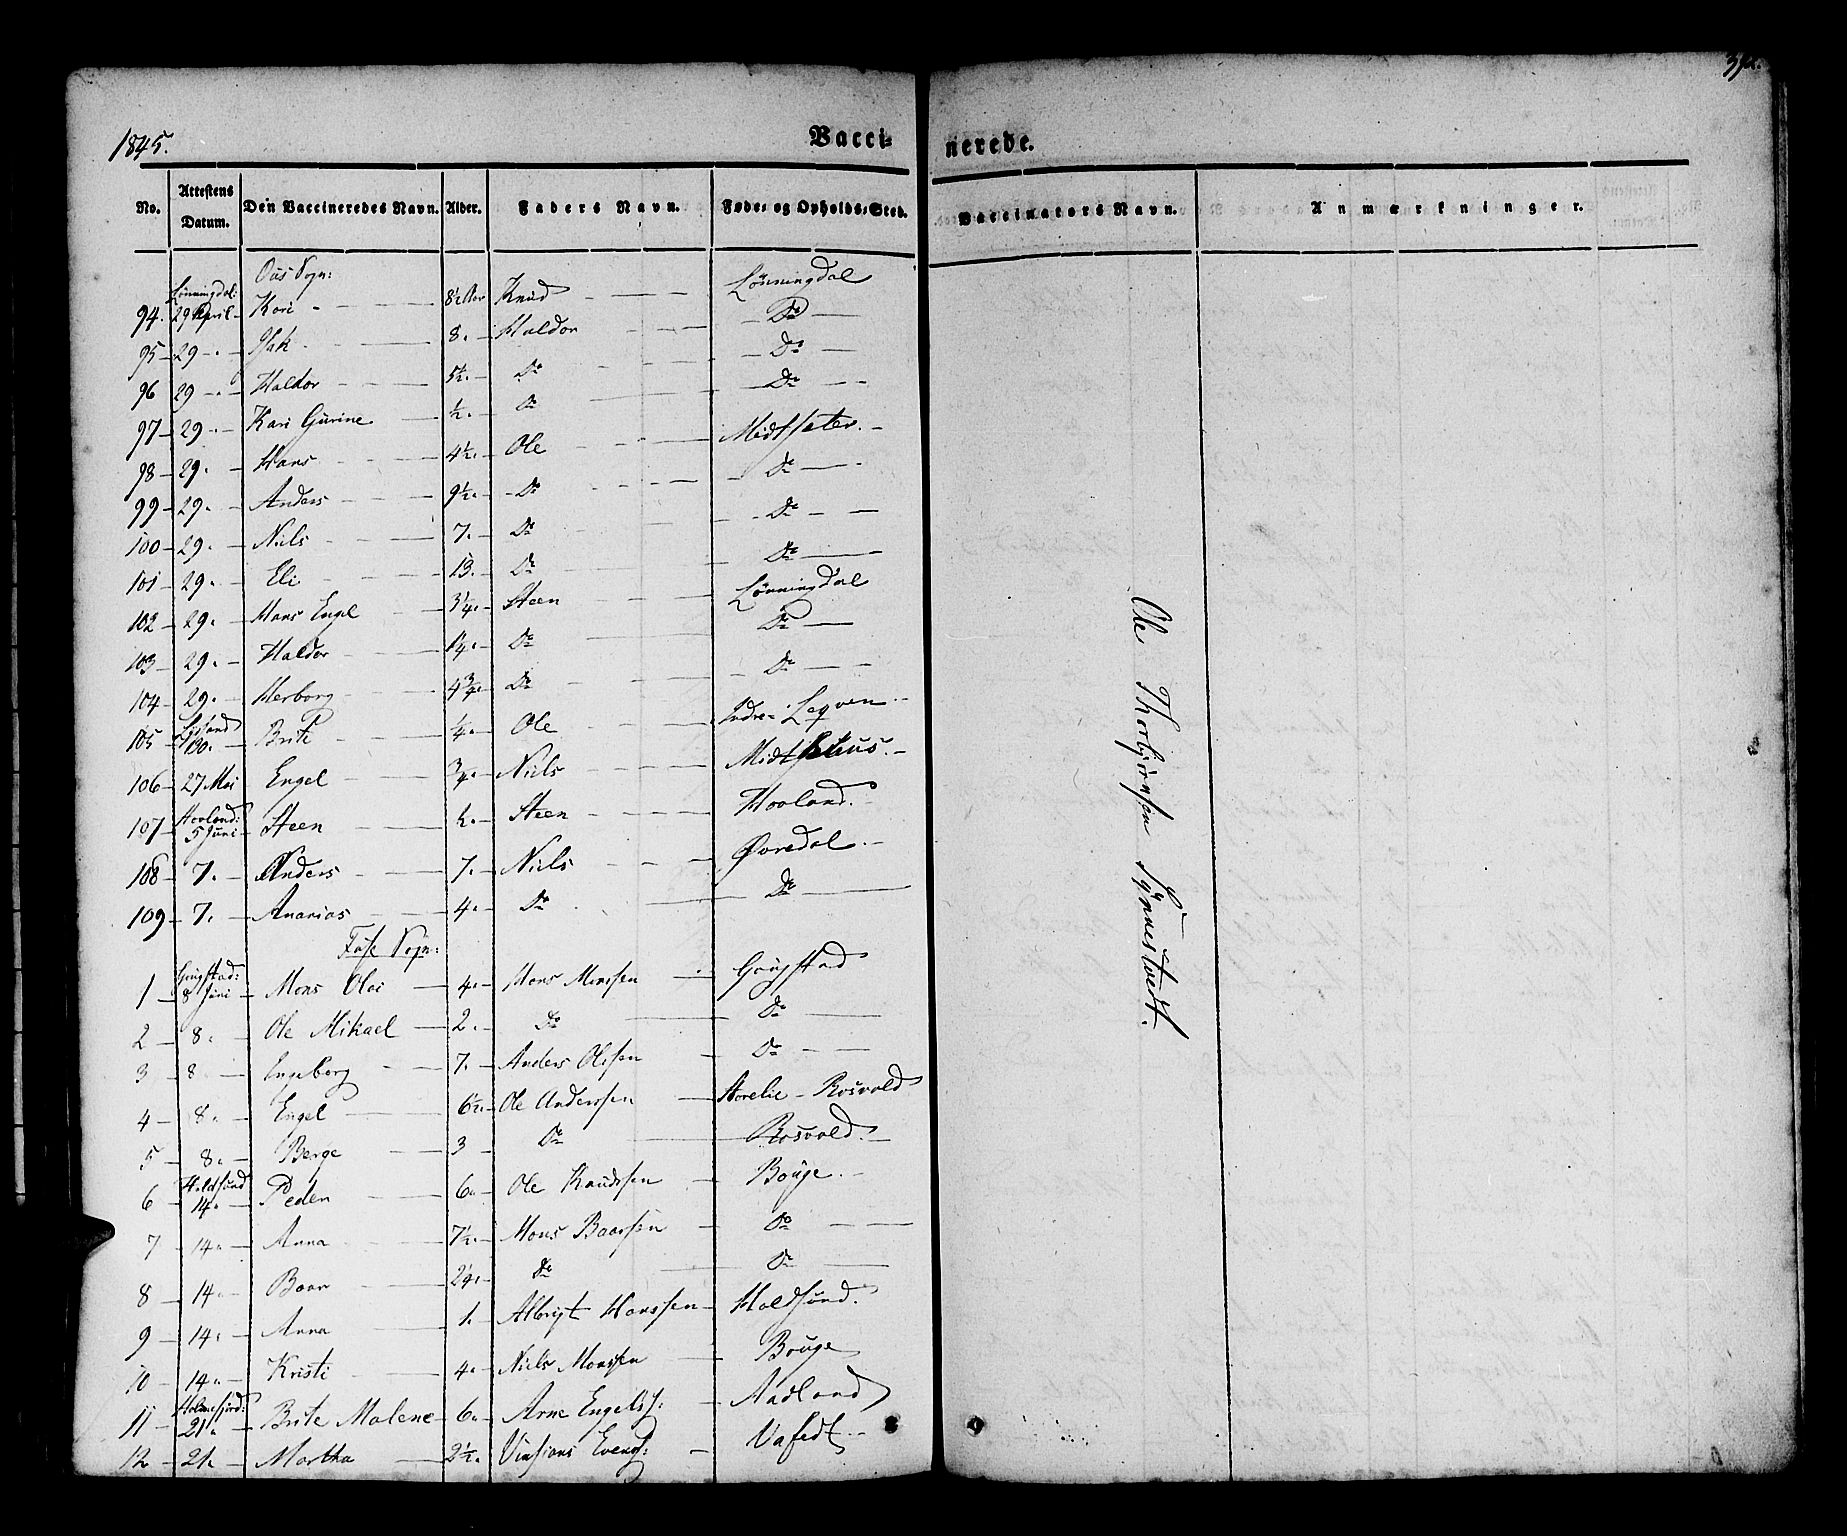 1845.
Vacci- nerede.
No. Attestens Datum. Den Vaccineredes Navn. Alder. Faders Navn. Føde- og Opholds-Sted. Vaccinators Navn. Anmærkninger.
Ous Sogn:
94. Lønningdal: 29 April Kari 8½ Aar Knud Lønningdal
95 29 Isak 8. Haldor Do
96 29 Haldor 5½. Do Do
97 29 Kari Gurine ½. Do Do
98 29. Hans 4½. Ole Midtsæter.
99 29. Anders 9½. Do Do
100 29. Niels 7. Do Do
101 29. Eli 13. Do Do
102 29. Hans Engel 3¼. Steen Lønningdal
103 29. Haldor ¼. Do Do
104 29. Herborg 4¾. Do Do
105 30. Brite ¼. Ole Indre Leqven
106 27 Mai Engel ¾. Niels
107 Hovland: 5 Juni Steen ½. Steen Hovland.
108 7. Anders 7. Niels Øvredal
109 7. Ananias 4. Do Do
Fuse Sogn:
1 8 Juni Mons Olai 4. Hans Monssen Gougstad
2 8. Ole Mikael 2. Do Do
3 8 Ingeborg 7. Anders Olssen Do
4 8. Engel 6½. Ole Anderssen Rosvold
5 8. Berge 3 Do Rosvold.
6 Holdsund 14. Peder 6. Ole Knudssen Bouge
7 14. Anna 7½. Mons Baarsen Do
8 14. Baar 2¼. Do Do
9 14. Anna 1. Albrigt Hanssen Holdsund.
10 14. Kristi 4. Niels Monssen Bouge
11 Holmefjord: 21. Brite Malene 6. Arne Engels. Aadland
12 21. Martha 2½. Vafedt
Ole Thorbjørnsen Tynnestvedt.